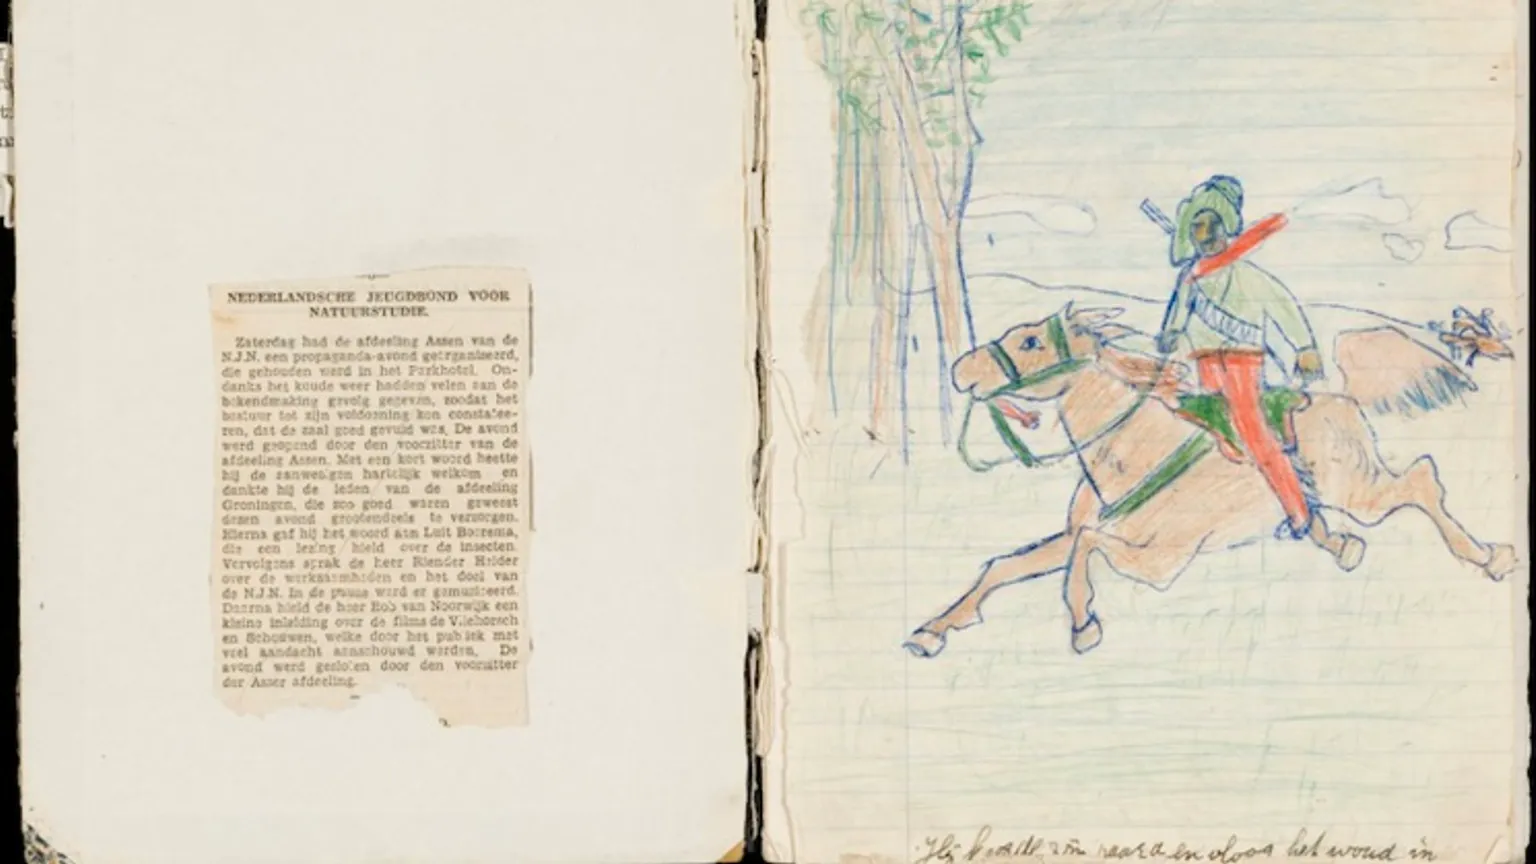 NEDERLANDSCHE JEUGDBOND VOOR
NATUURSTUDIE.
Zaterdag had de afdeeling Assen van de
N.J.N. een propaganda-avond georganiseerd,
die gehouden werd in het Parkhotel. On-
danks het koude weer hadden velen aan de
bekendmaking gevolg gegeven, zoodat het
bestuur tot zijn voldoening kon constatee-
ren, dat de zaal goed gevuld was. De avond
werd geopend door den voorzitter van de
afdeeling Assen. Met een kort woord heette
hij de aanwezigen hartelijk welkom en
dankte hij de leden van de afdeeling
Groningen, die zoo goed waren geweest
dezen avond grootendeels te verzorgen.
Hierna gaf hij het woord aan Luit Boerema,
die een lezing hield over de insecten.
Vervolgens sprak de heer Riender Helder
over de werkzaamheden en het doel van
de N.J.N. In de pauze werd er gemusiceerd.
Daarna hield de heer Rob van Noorwijk een
kleine inleiding over de films de Vliehorsch
en Schouwen, welke door het publiek met
veel aandacht aanschouwd werden. De
avond werd gesloten door den voorzitter
der Asser afdeeling.
Hij zijn paard en vloog het woud in